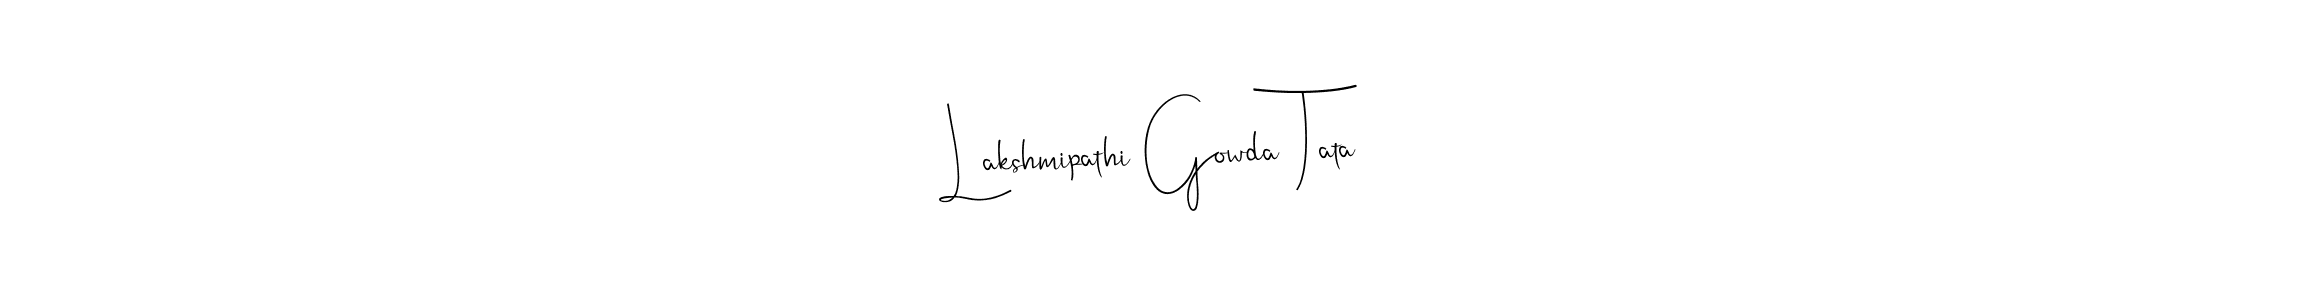 Lakshmipathi Gowda Tata